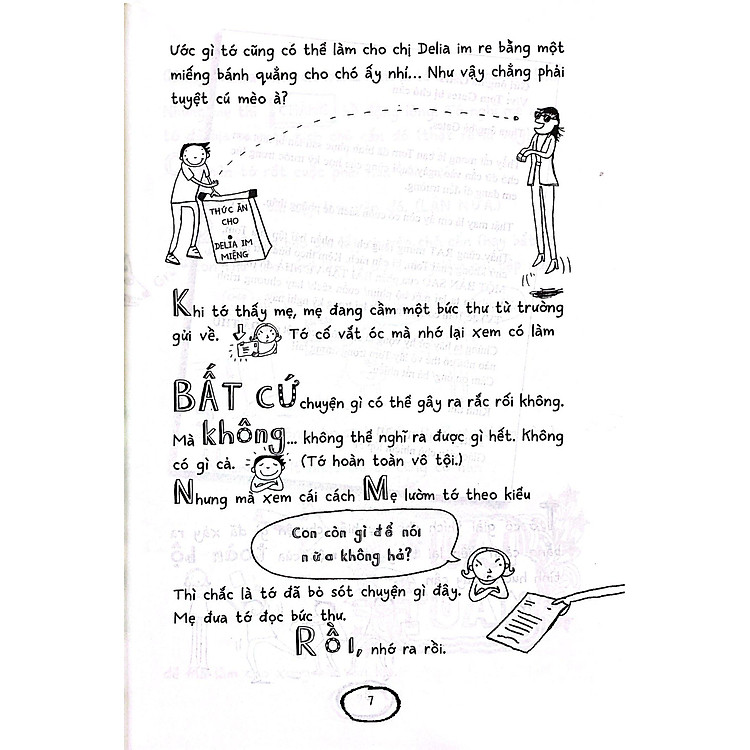 Ước gì tớ cũng có thể làm cho chị Delia im re bằng một
miếng bánh quẳng cho chó ấy nhỉ... Như vậy chẳng phải
tuyệt cú mèo à?
THỨC ĂN
CHO
DELIA IM
MIỆNG
Khi tớ thấy mẹ, mẹ đang cầm một bức thư từ trường
gửi về. Tớ cố vắt óc mà nhớ lại xem có làm
BẤT CỨ chuyện gì có thể gây ra rắc rối không.
Mà không... không thể nghĩ ra được gì hết. Không
có gì cả. (Tớ hoàn toàn vô tội.)
Nhưng mà xem cái cách Mẹ lườm tớ theo kiểu
Con còn gì để nói
nữa không hả?
Thì chắc là tớ đã bỏ sót chuyện gì đây.
Mẹ đưa tớ đọc bức thư.
RỒI, nhớ ra rồi.
7